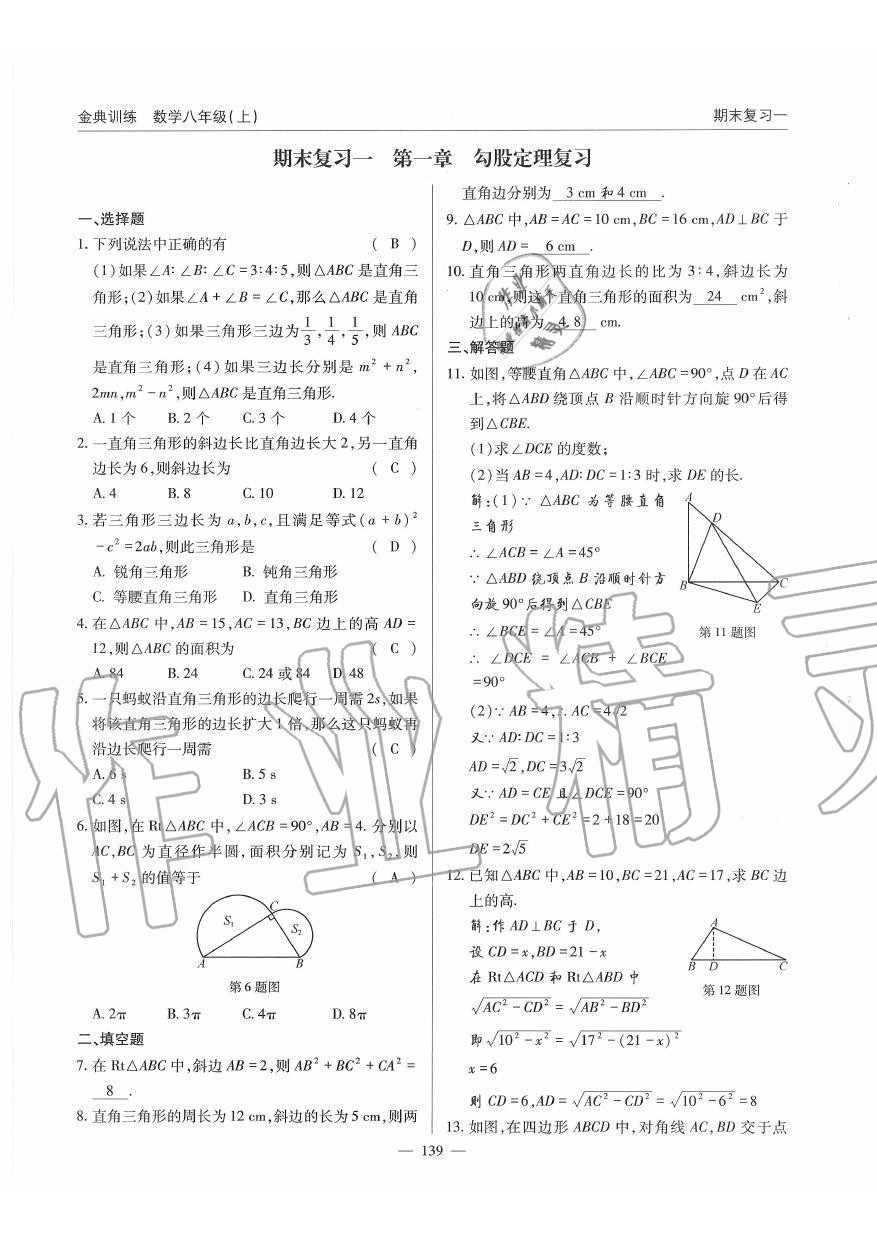 金典训练 数学八年级(上)
期末复习一
期末复习一 第一章 勾股定理复习
一、选择题
1. 下列说法中正确的有 ( B )
(1)如果∠A∶∠B∶∠C=3∶4∶5,则△ABC 是直角三
角形;(2)如果∠A+∠B=∠C,那么△ABC 是直角
三角形;(3)如果三角形三边为1/3,1/4,1/5,则 ABC
是直角三角形;(4)如果三边长分别是 m²+n²,
2mn,m²-n²,则△ABC 是直角三角形.
A. 1 个 B. 2 个 C. 3 个 D. 4 个
2. 一直角三角形的斜边长比直角边长大 2,另一直角
边长为 6,则斜边长为 ( C )
A. 4 B. 8 C. 10 D. 12
3. 若三角形三边长为 a,b,c,且满足等式(a+b)²
-c²=2ab,则此三角形是 ( D )
A. 锐角三角形 B. 钝角三角形
C. 等腰直角三角形 D. 直角三角形
4. 在△ABC 中,AB=15,AC=13,BC 边上的高 AD=
12,则△ABC 的面积为 ( C )
A. 84 B. 24 C. 24 或 84 D. 48
5. 一只蚂蚁沿直角三角形的边长爬行一周需 2s,如果
将该直角三角形的边长扩大 1 倍,那么这只蚂蚁再
沿边长爬行一周需 ( C )
A. 6 s B. 5 s
C. 4 s D. 3 s
6. 如图,在 Rt△ABC 中,∠ACB=90°,AB=4. 分别以
AC,BC 为直径作半圆,面积分别记为 S₁,S₂,则
S₁+S₂ 的值等于 ( A )
S₁ C S₂
A B
第 6 题图
A. 2π B. 3π C. 4π D. 8π
二、填空题
7. 在 Rt△ABC 中,斜边 AB=2,则 AB²+BC²+CA²=
8 .
8. 直角三角形的周长为 12 cm,斜边的长为 5 cm,则两
直角边分别为 3 cm 和 4 cm .
9. △ABC 中,AB=AC=10 cm,BC=16 cm,AD⊥BC 于
D,则 AD= 6 cm .
10. 直角三角形两直角边长的比为 3∶4,斜边长为
10 cm,则这个直角三角形的面积为 24 cm²,斜
边上的高为 4.8 cm.
三、解答题
11. 如图,等腰直角△ABC 中,∠ABC=90°,点 D 在 AC
上,将△ABD 绕顶点 B 沿顺时针方向旋 90°后得
到△CBE.
(1)求∠DCE 的度数;
(2)当 AB=4,AD∶DC=1∶3 时,求 DE 的长.
解:(1)∵ △ABC 为等腰直角
三角形
∴ ∠ACB=∠A=45°
∵ △ABD 绕顶点 B 沿顺时针方
向旋 90°后得到△CBE
∴ ∠BCE=∠A=45°
∴ ∠DCE = ∠ACB + ∠BCE
=90°
A D B C E
第 11 题图
(2)∵ AB=4,∴ AC=4√2
又∵ AD∶DC=1∶3
AD=√2,DC=3√2
又∵ AD=CE 且∠DCE=90°
DE²=DC²+CE²=2+18=20
DE=2√5
12. 已知△ABC 中,AB=10,BC=21,AC=17,求 BC 边
上的高.
解:作 AD⊥BC 于 D,
设 CD=x,BD=21-x
在 Rt△ACD 和 Rt△ABD 中
√(AC²-CD²) = √(AB²-BD²)
即√(10²-x²) = √(17²-(21-x)²)
x=6
则 CD=6,AD=√(AC²-CD²)=√(10²-6²)=8
A
B D C
第 12 题图
13. 如图,在四边形 ABCD 中,对角线 AC,BD 交于点
— 139 —
作业精灵